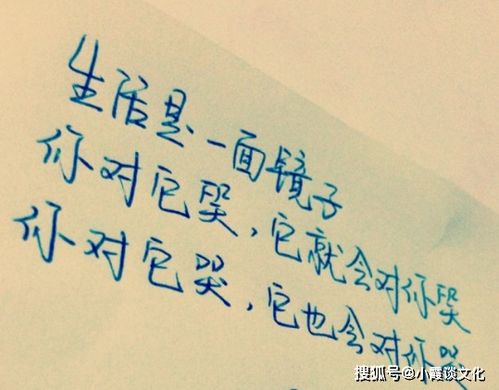 生活是一面镜子
你对它哭,它就会对你哭
你对它哭,它也会对你哭
搜狐号@小霞谈文化